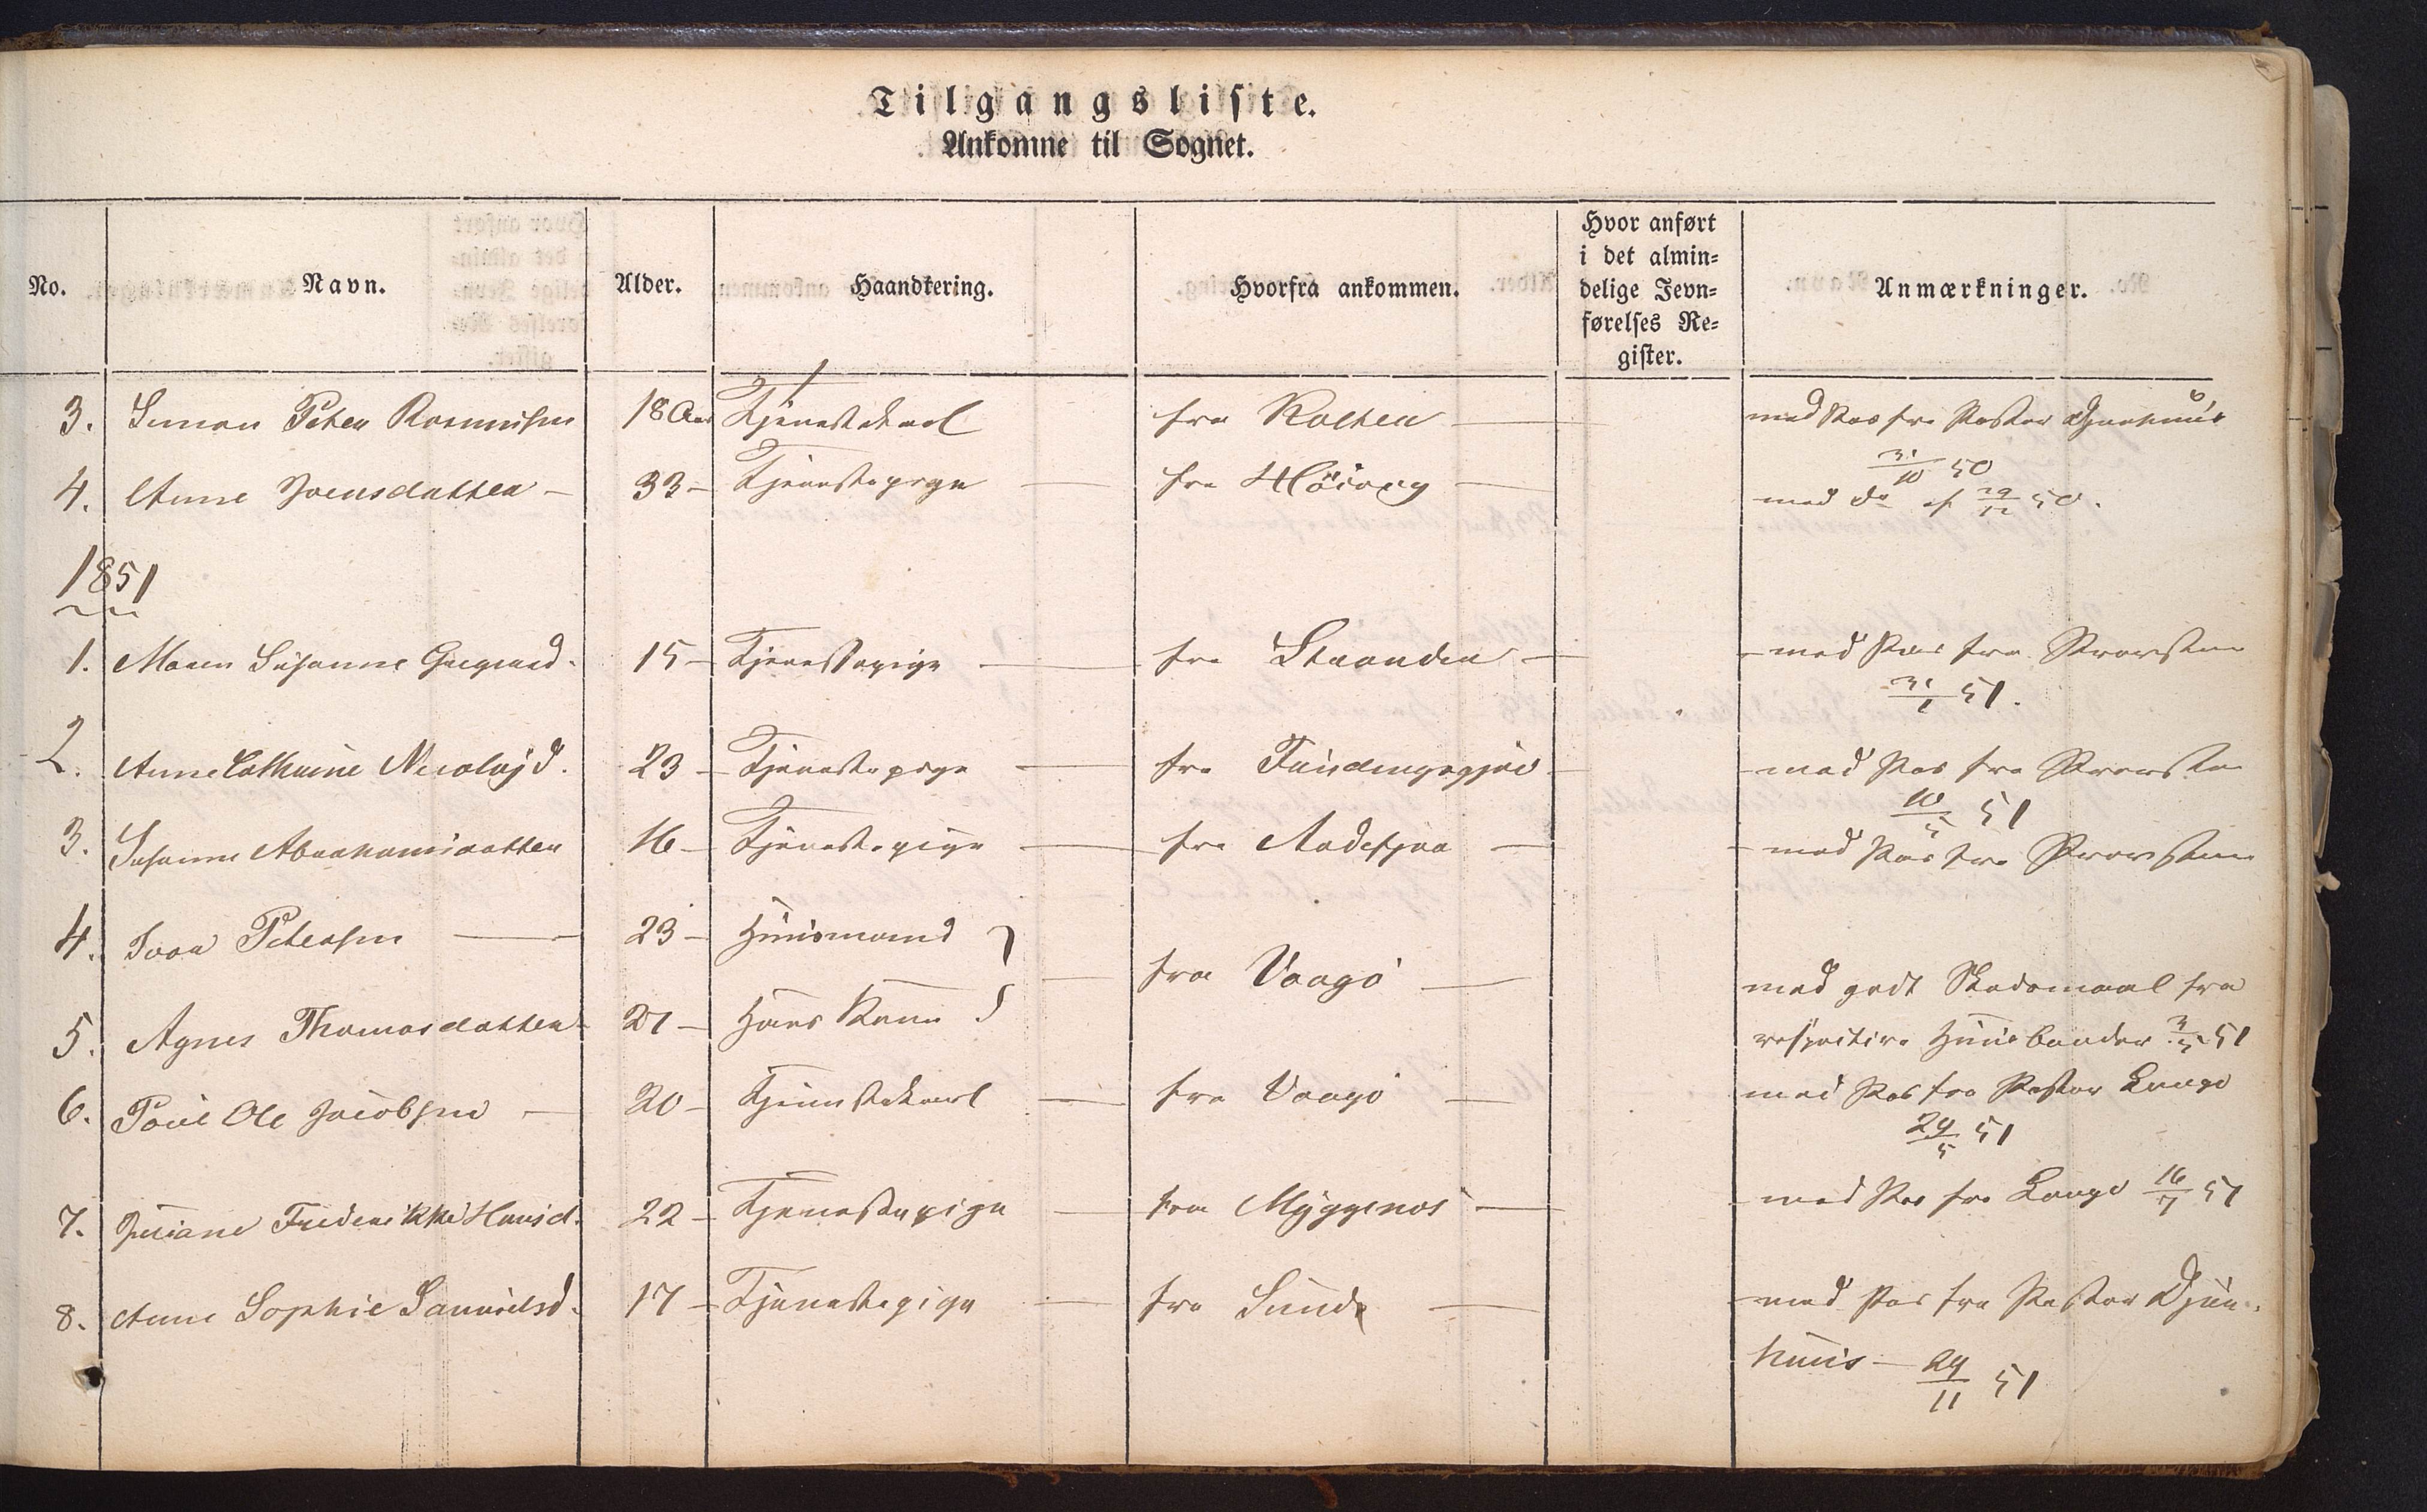 Tilgangsliste.
Ankomne til Sognet.
No. Navn. Alder. Haandtering. Hvorfra ankommen. Hvor anført i det almin= delige Jevn= førelses Re= gister. Anmærkninger.
3. Simon Peter Rasmussen 18 Aar Tjenestekarl fra med Pas fra Pastor Djurhuus
31/10 50
4. Anne Joensdatter – 33 – Tjenestepige – fra Höivig – med do af 29/12 50.
1851
1. Maren Susanne 15 – Tjenestepige – fra Stranden – – med Pas fra Provsten
31/1 51.
2. Anne Cathrine Nicolajd. 23 – Tjenestepige – fra Fundingsgjov – – med Pas fra Provsten
10/5 51
3. Susanne Abrahamsdatter 16 – Tjenestepige – fra – – med Pas fra Provsten
4. Petersen – 23 – Huusmand
fra Vaagö –
5. Agnes Thomasdatter – 27 – Hans Kone
med godt Skudsmaal fra
respective Huusbonder 3/5 51
6. Poul Ole Jacobsen – 20 – Tjenestekarl – fra Vaagö – med Pas fra Pastor Lange
29/5 51
7. Frederikke Hansd. 22 – Tjenestepige – fra Myggenæs – – med Pas fra Lange 16/7 51
8. Anne Sophie Samuelsd. 17 – Tjenestepige – fra Sund – – med Pas fra Pastor Djur-
huus – 29/11 51